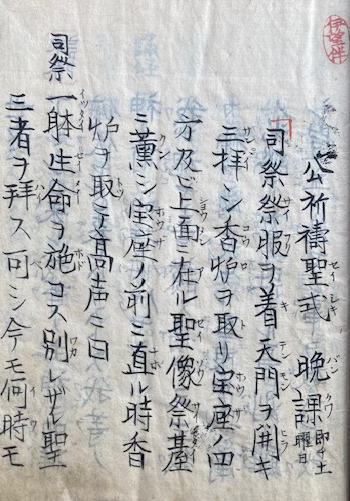 公祈禱聖式 晩課 即チ土曜日
司祭祭服ヲ着天門ヲ開キ
三拝シ香炉ヲ取リ宝座ノ四
方及ビ上面ニ在ル聖像祭基
ニ薫シ宝座ノ前ニ直ル時香
炉ヲ取テ高声ニ曰
司祭 一躰生命ヲ施コス別レザル聖
三者ヲ拝ス可シ今モ何時モ